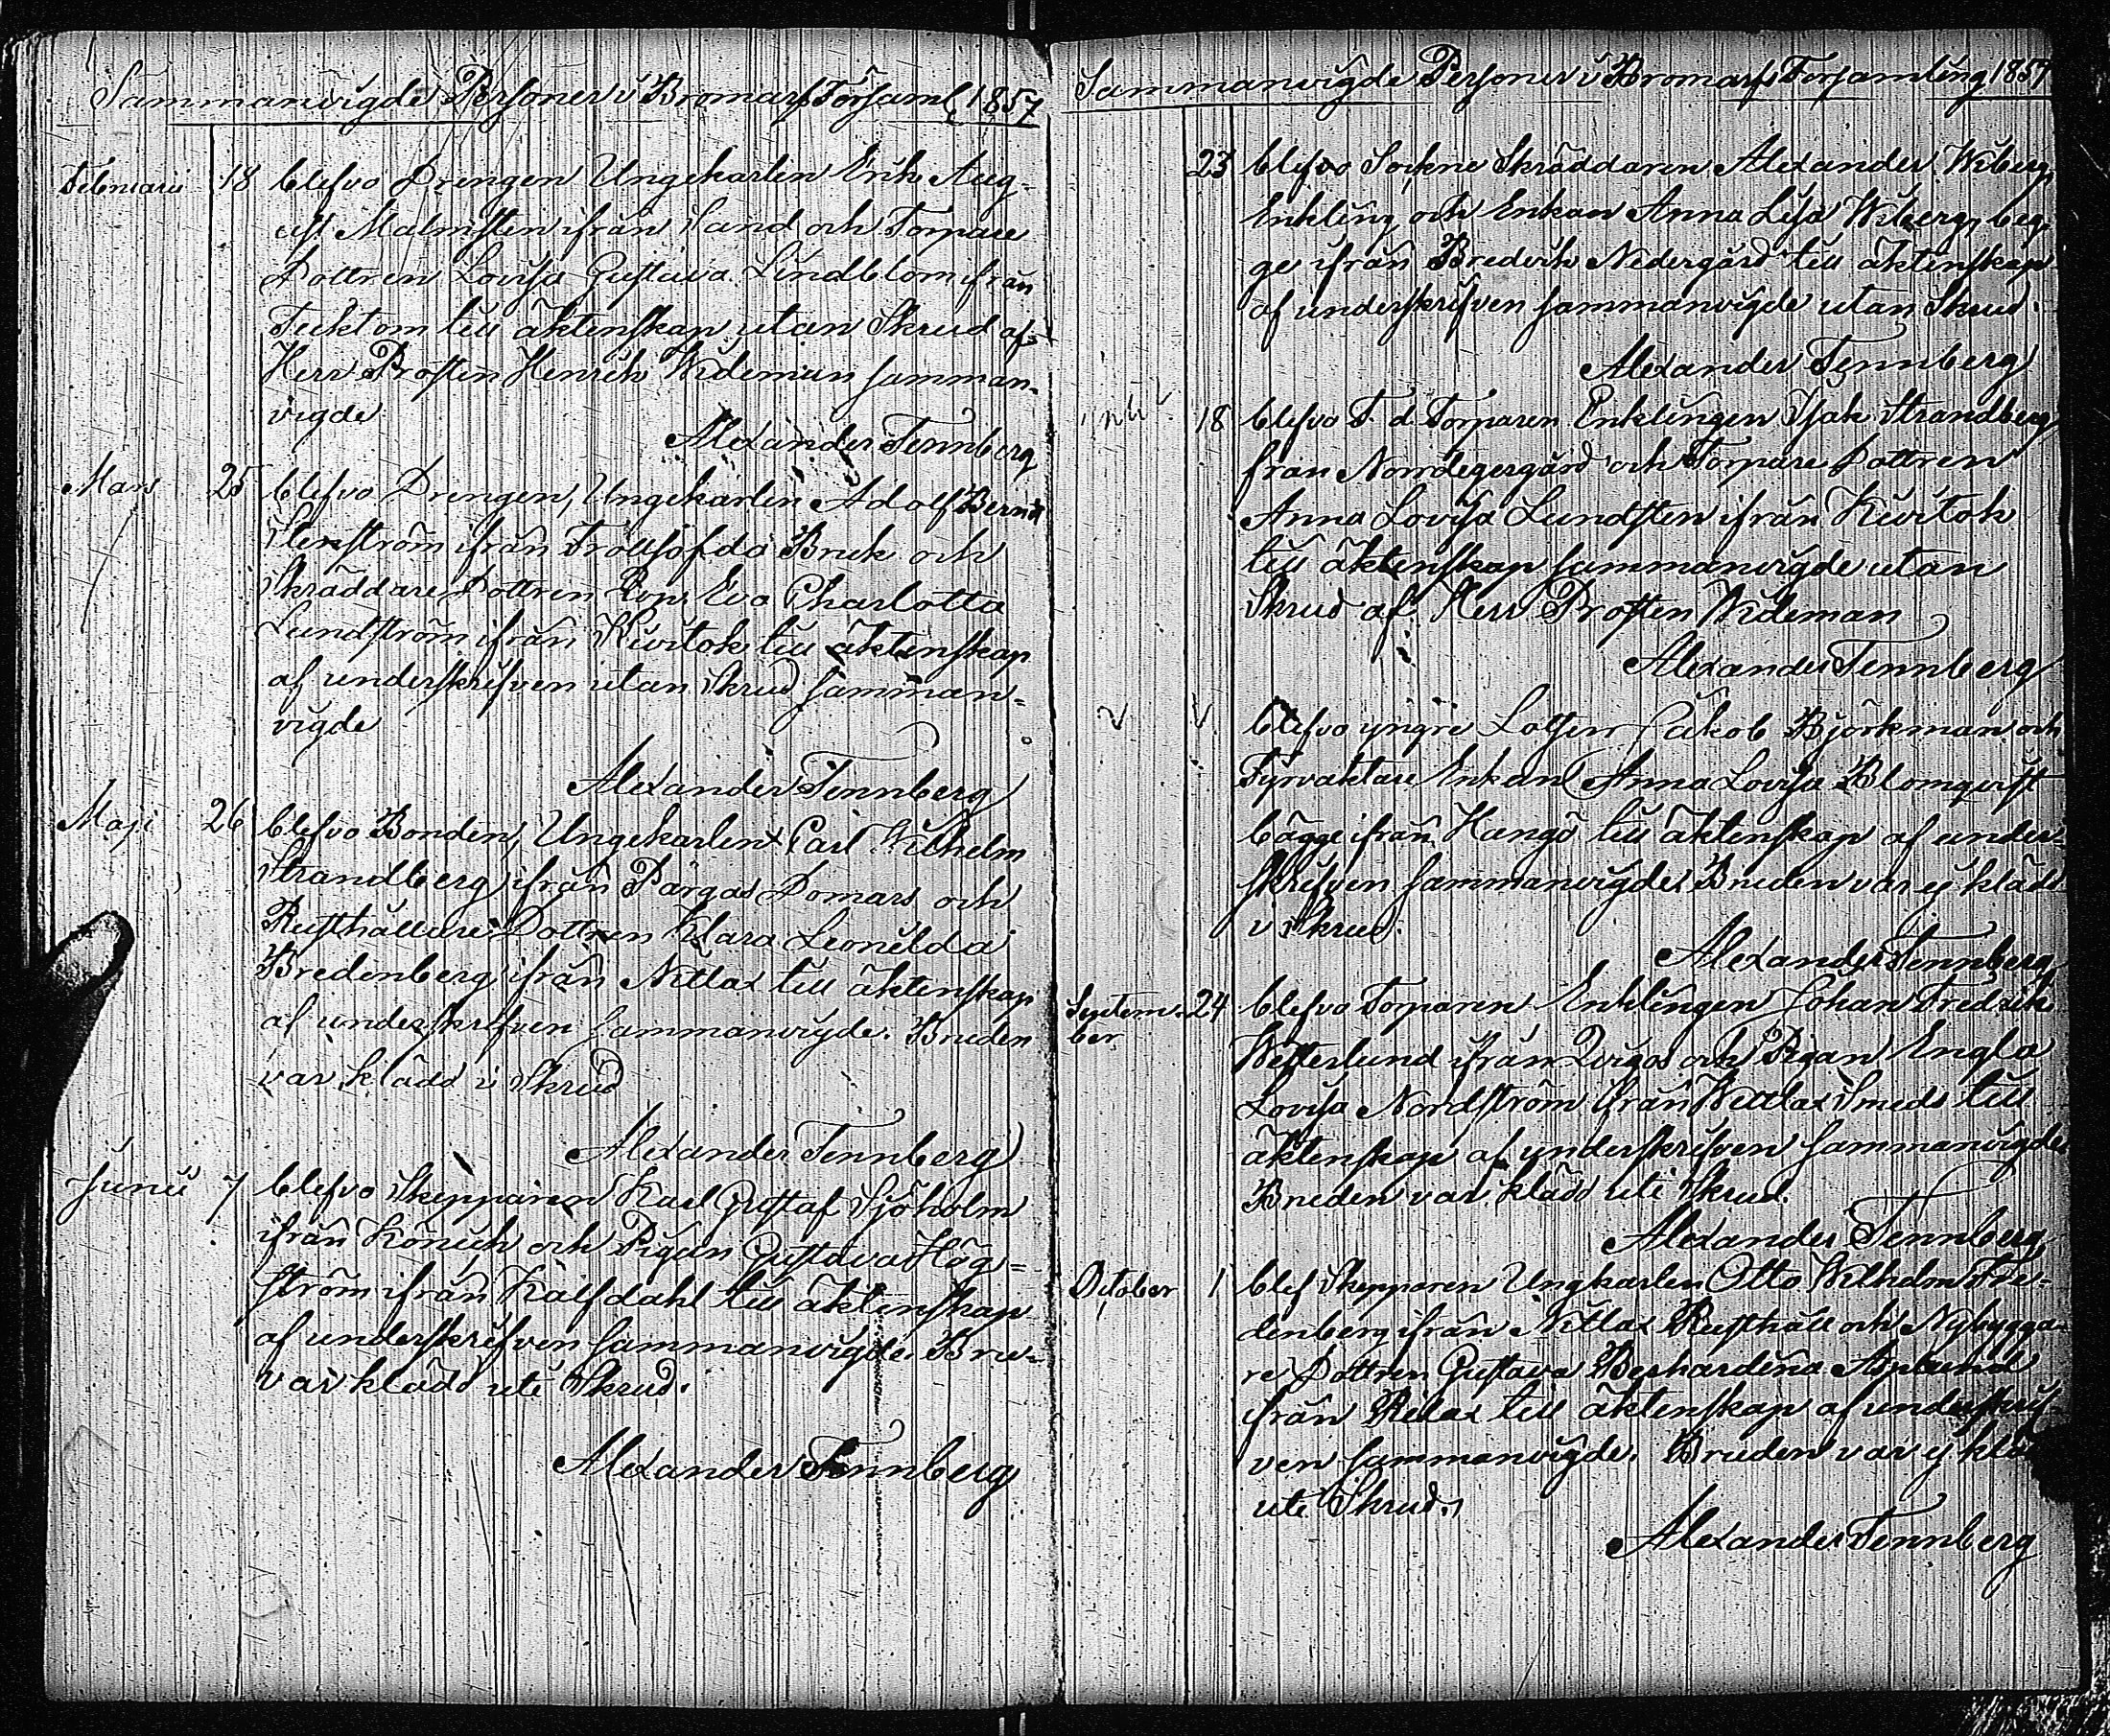 Sammanvigde Personer i Bromarf Församl 1857
Februarii 18 blefvo Drengen Ungekarlen Erik Aug-
ust Malmsten ifrån Sand och Torpare
Dottren Lovisa Gustava Lindblom ifrån
Tecktom till äktenskap utan Skrud af
Herr Prosten Henrik Wideman samman-
vigde
Alexander Tennberg
Mars 25 blefvo Drengen, Ungekarlen Adolf Bernd
Stenström ifrån Trollsofda Bruk och
Skräddare Dottren Eva Charlotta
Lundström ifrån Kivitok till äktenskap
af underskrifven utan Skrud samman=
vigde
Alexander Tennberg
Maji 26 blefvo Bonden, Ungekarlen Carl Wilhelm
Strandberg ifrån Pargas Domars och
Rusthållare Dottren Klara Leonilda
Bredenberg ifrån Nitlax till äktenskap
af underskrifven sammanvigde. Bruden
var klädd i Skrud
Alexander Tennberg
Junii 7 blefvo Skepparen Karl Gustaf Sjöholm
ifrån Könich och Pigan Gustava Hög=
ström ifrån Kalfdahl till äktenskap
af underskrifven sammanvigde. Bru-
var klädd uti Skrud.
Alexander Tennberg
Sammanvigde Personer i Bromarf Forsamling 1857
23 blefvo Sockne Skräddaren Alexander Wiberg,
Enkling och Enkan Anna Lisa Wiberg, beg
ge ifrån Bredvik Nedergård till äktenskap
af underskrifven sammanvigde utan Skrud.
Alexander Tennberg
18 blefvo F. d. Torparen Enklingen Isak Strandberg
från Norrdegergård och Torpare Dottren
Anna Lovisa Lundsten ifrån Kivitok
till äktenskap sammanvigde utan
Skrud af Herr Prosten Wideman
Alexander Tennberg
blefvo yngre Lotsen Jakob Björkman och
Fyrvaktare Enkan Anna Lovisa Blomqvist
bägge ifrån Hangö till äktenskap af under-
skrifven sammanvigde. Bruden var ej klädd
i Skrud.
Alexander Tennberg
Septem- 24 blefvo Torparen Enklingen Johan Fredrik
ber Westerlund ifrån Qvigos och Pigan Engla
Lovisa Nordström ifrån Wettlax Smeds till
äktenskap af underskrifven sammanvigde.
Bruden var klädd uti Skrud.
Alexander Tennberg
October 1 blef Skepparen Ungkarlen Otto Wilhelm Bre-
denberg ifrån Nitlax Rusthåll och Nybygga-
re Dottren Gustava Berhardina Asplund
ifrån Rilax till äktenskap af underskrif
ven sammanvigde. Bruden var ej klä
uti Skrud.
Alexander Tennberg